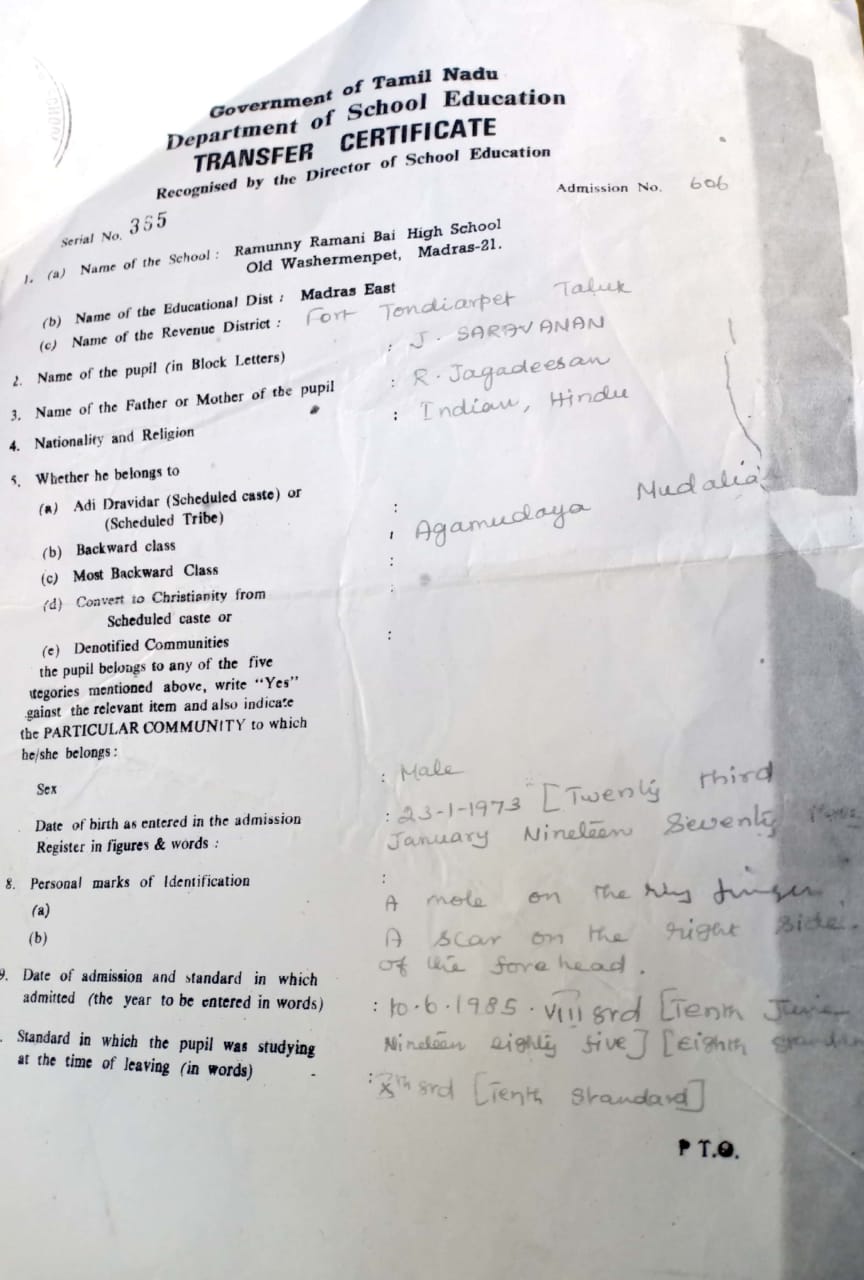 Government of Tamil Nadu
Department of School Education
TRANSFER CERTIFICATE
Recognised by the Director of School Education
Admission No. 606
Serial No. 355
1. (a) Name of the School : Ramunny Ramani Bai High School
Old Washermenpet, Madras-21.
(b) Name of the Educational Dist : Madras East
(c) Name of the Revenue District : Fort Tondiarpet Taluk
2. Name of the pupil (in Block Letters) : J. SARAVANAN
3. Name of the Father or Mother of the pupil : R. Jagadeesan
4. Nationality and Religion : Indian, Hindu
5. Whether he belongs to
(a) Adi Dravidar (Scheduled caste) or :
(Scheduled Tribe)
(b) Backward class : Agamudaya Mudaliar
(c) Most Backward Class :
(d) Convert to Christianity from :
Scheduled caste or
(e) Denotified Communities :
the pupil belongs to any of the five
tegories mentioned above, write "Yes"
gainst the relevant item and also indicate
the PARTICULAR COMMUNITY to which
he/she belongs :
Sex : Male
Date of birth as entered in the admission : 23-1-1973 [Twenty third
Register in figures & words : January Nineteen Seventy
8. Personal marks of Identification :
(a) A mole on the finger
(b) A scar on the right side.
of the forehead.
9. Date of admission and standard in which
admitted (the year to be entered in words) : 10.6.1985. VIII srd [Tenth June
. Standard in which the pupil was studying Nineteen eighty five] [Eighth
at the time of leaving (in words) : Xth srd [Tenth Standard]
P T.O.